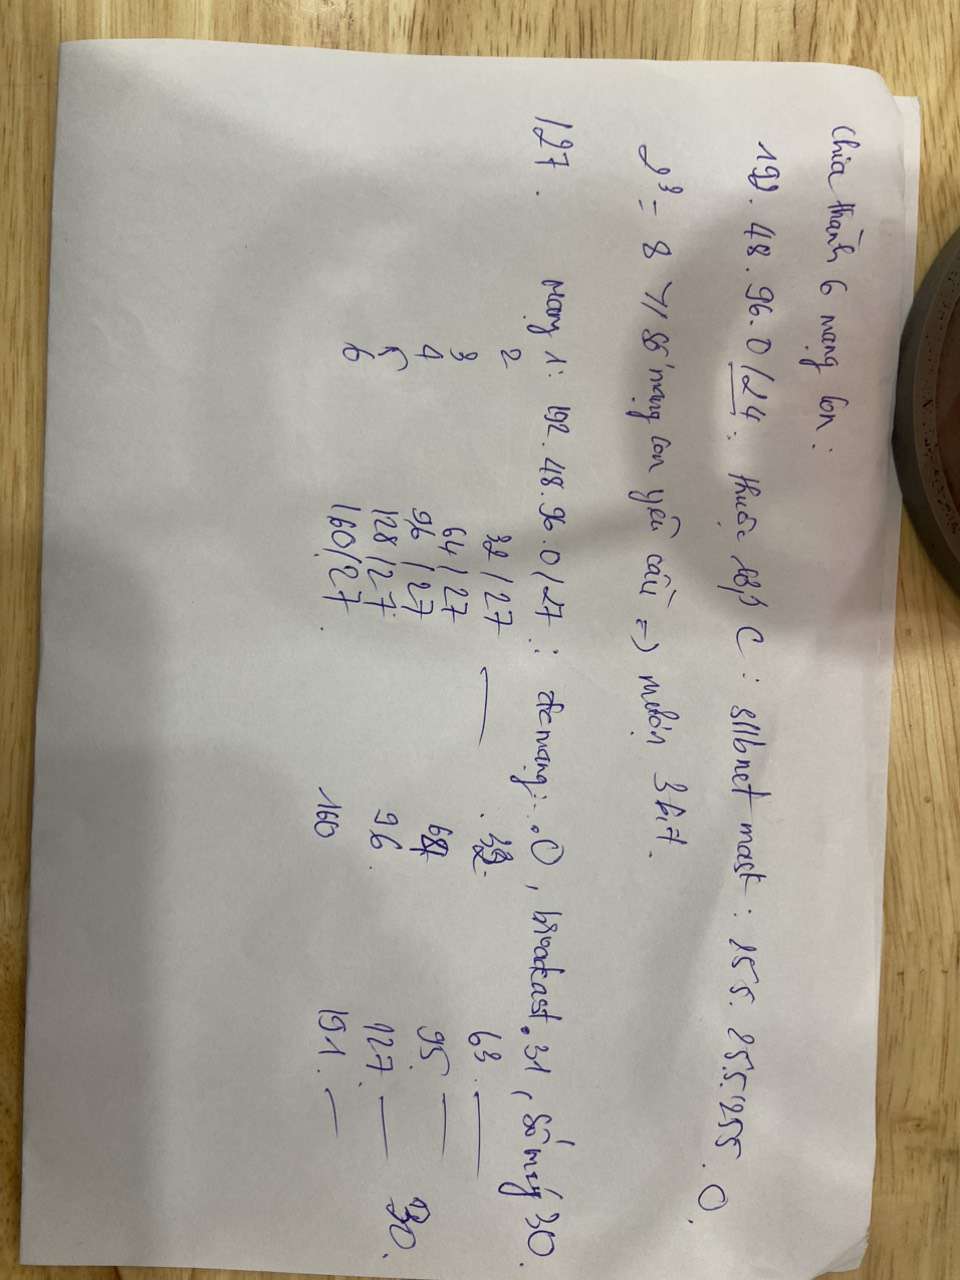 Chia thành 6 mạng con:
192. 48. 96. 0 /24. thuộc lớp C: subnet mask: 255. 255. 255. 0.
2³ = 8 >/ số mạng con yêu cầu => mượn 3 bit.
/27. Mạng 1: 192. 48. 96. 0/27: đc mạng: .0, broadcast .31, số máy 30.
2 32/27 — .32. 63. —
3 64/27 64 95. —
4 96/27 96. 127. — 30.
5 128/27
6 160/27. 160 191. —